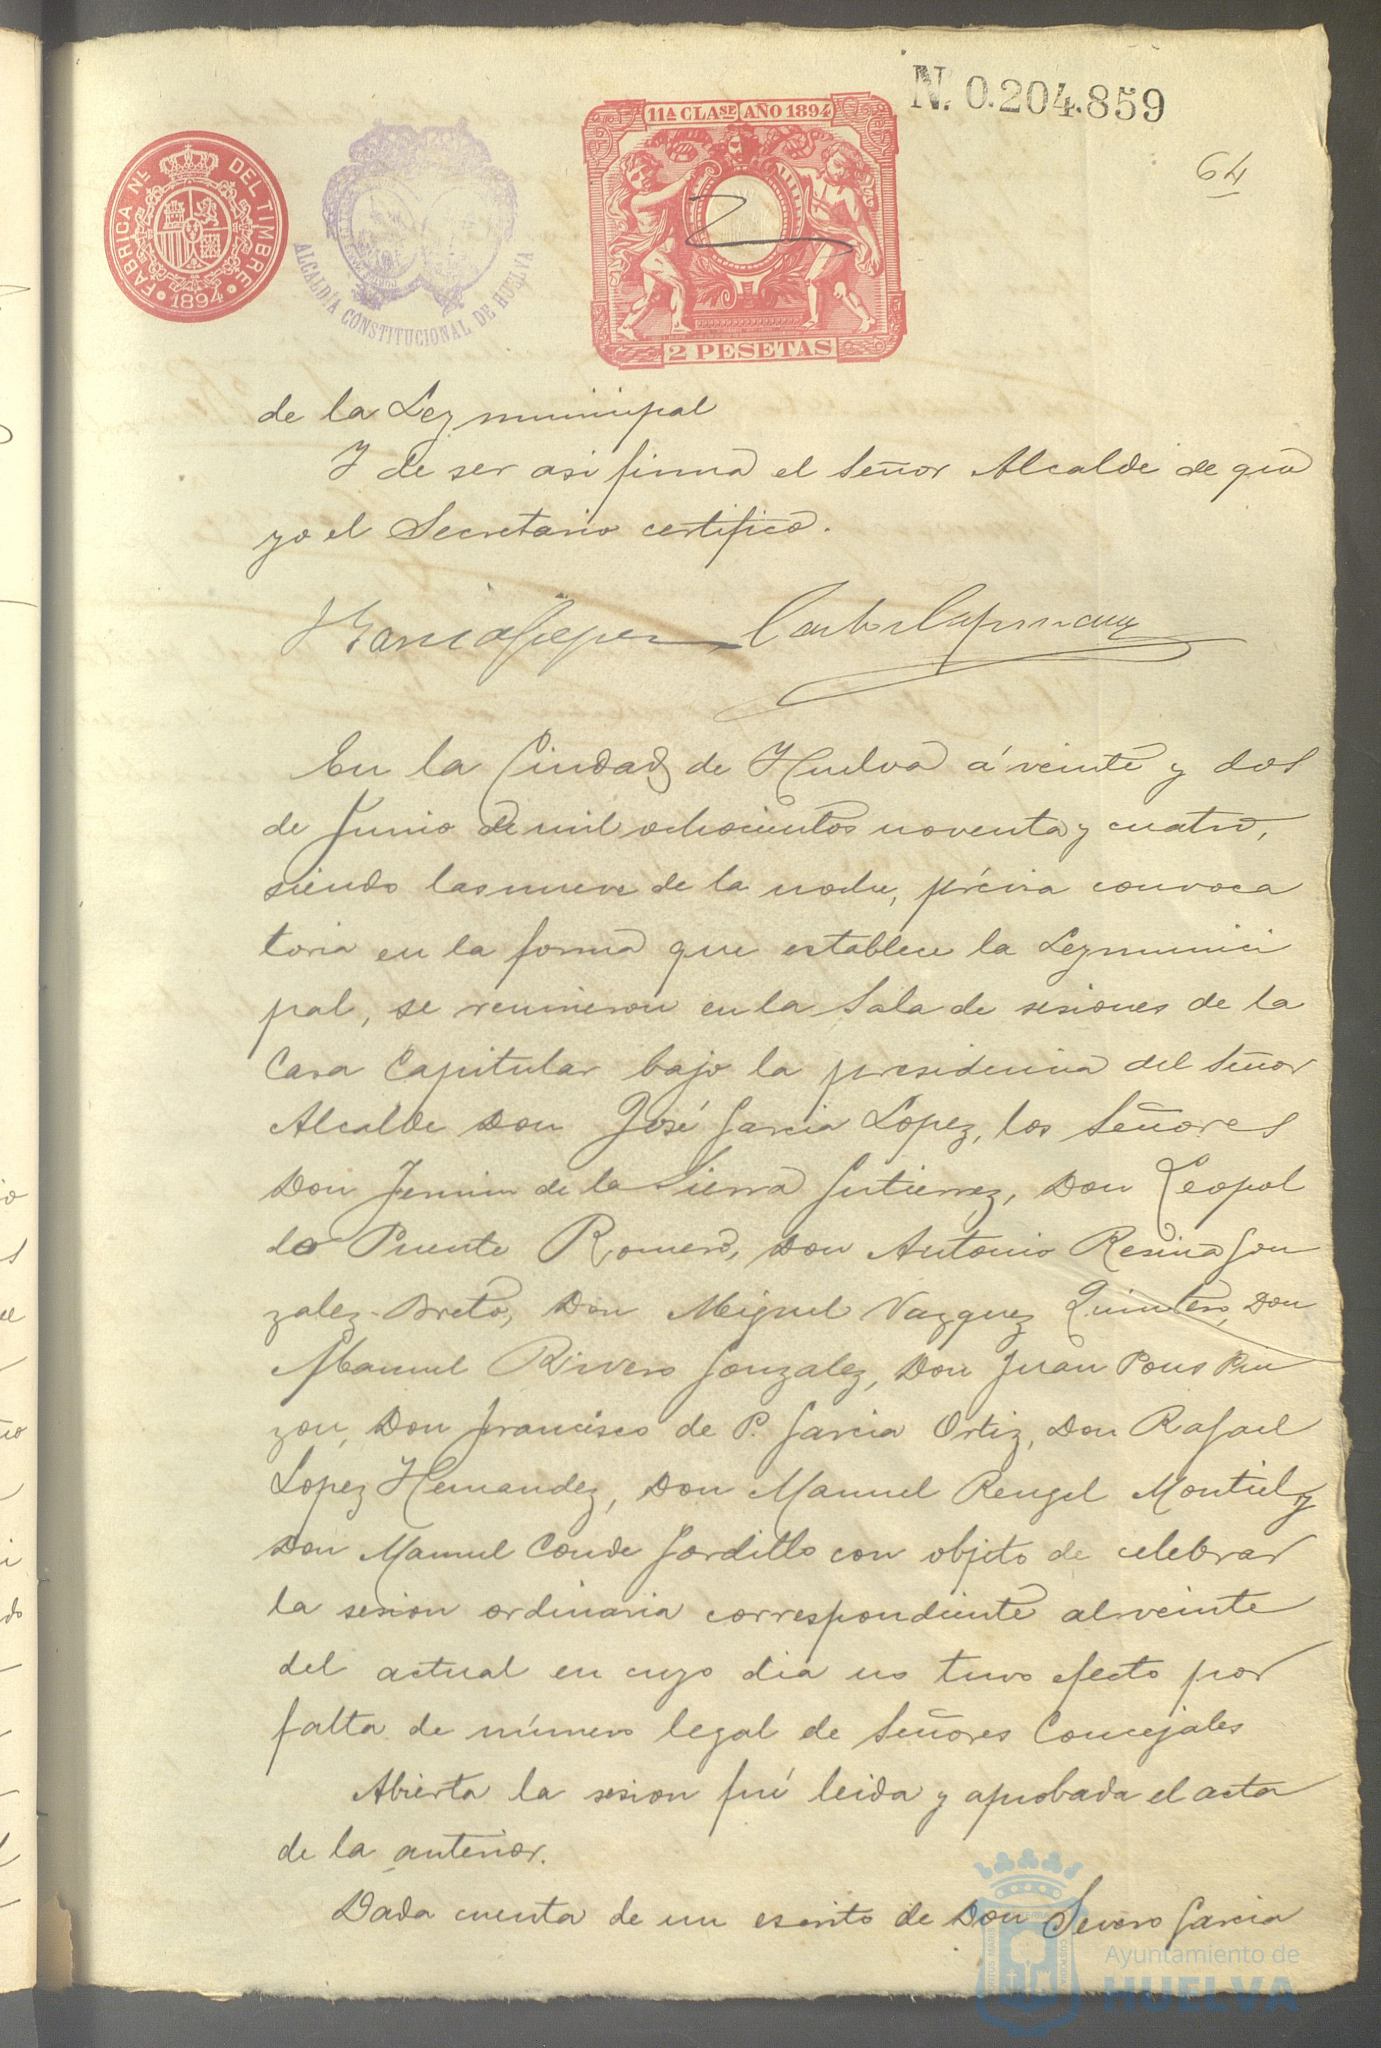 N. 0.204.859
11A CLASE AÑO 1894
64
FABRICA NL. DEL TIMBRE
1894
ALCALDÍA CONSTITUCIONAL DE HUELVA
2 PESETAS
de la Ley municipal
Y de ser asi firma el Señor Alcalde de que
yo el Secretario certifico.
En la Ciudad de Huelva á veinte y dos
de Junio de mil ochocientos noventa y cuatro,
siendo las nueve de la noche, prévia convoca
toria en la forma que establece la Ley munici
pal, se reunieron en la Sala de sesiones de la
Casa Capitular bajo la presidencia del Señor
Alcalde Don José Garcia Lopez, los Señores
Don Fermin de la Sierra Gutierrez, Don Leopol
do Puente Romero, Don Antonio Resina Gon
zalez-Breto, Don Miguel Vazquez Quintero, Don
Manuel Rivero Gonzalez, Don Juan Pons Pin
zon, Don Francisco de P. Garcia Ortiz, Don Rafael
Lopez Hernandez, Don Manuel Rengel Montiel y
Don Manuel Conde Gordillo con objeto de celebrar
la sesion ordinaria correspondiente al veinte
del actual en cuyo dia no tuvo efecto por
falta de número legal de Señores Concejales
Abierta la sesion fué leida y aprobada el acta
de la anterior.
Dada cuenta de un escrito de Don Severo Garcia
Ayuntamiento de
HUELVA